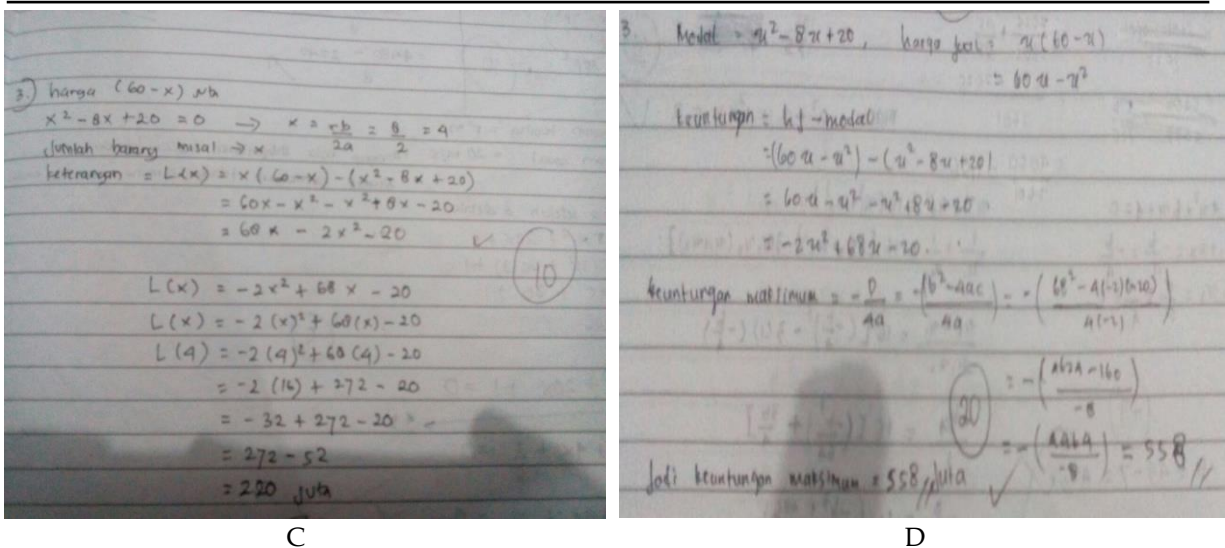 3.) harga (60-x) Juta
x² - 8x + 20 = 0 → x = -b/2a = 8/2 = 4
Jumlah barang misal → x
keterangan = L(x) = x(60-x) - (x² - 8x + 20)
= 60x - x² - x² + 8x - 20
= 68x - 2x² - 20
10
L(x) = -2x² + 68x - 20
L(x) = -2(x)² + 68(x) - 20
L(4) = -2(4)² + 68(4) - 20
= -2(16) + 272 - 20
= -32 + 272 - 20
= 272 - 52
= 220 juta
C
3. Modal = x² - 8x + 20, harga jual = x(60-x)
= 60x - x²
keuntungan = hj - modal
= (60x - x²) - (x² - 8x + 20)
= 60x - x² - x² + 8x - 20
= -2x² + 68x - 20
keuntungan maksimum = -D/4a = -(b² - 4ac / 4a) = -(68² - 4(-2)(-20) / 4(-2))
= -(4624 - 160 / -8)
20
= -(4464 / -8) = 558
Jadi keuntungan maksimum = 558 juta
D